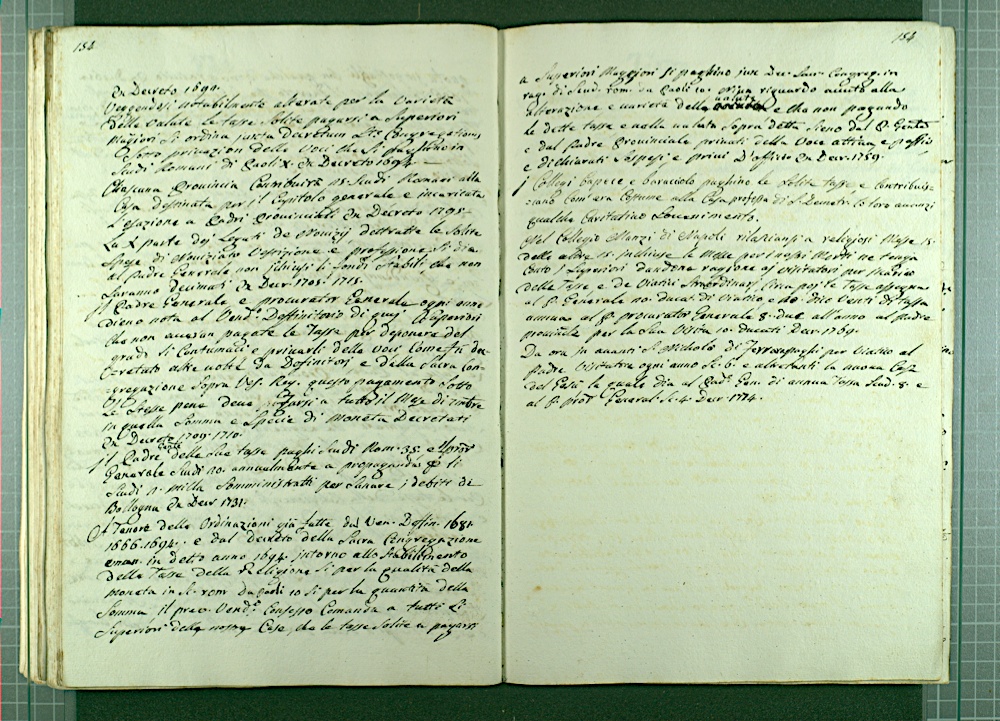 184
Ex Decreto 1694.
Vengendosi notabilmente alterate per la varietà
delle valute le tasse solite pagarsi a Superiori
Magiori si ordina juxta decretum Sac Congregationis
sotto privazion delle Voci che si paghino in
Scudi Romani di Paoli X. Ex Decreto 1694.
Chascuna Provincia Contribuirà 15. Scudi Romani alla
Casa destinata per il Capitolo generale e incaricata
l'esazione a Padri Provinciali Ex Decreto 1795
La X parte dej Legati de Novizij dettratte le Solite
Spese di Noviziato Vestizione e professione si dia
al Padre Generale non
saranno decimati Ex Decr 1705. 1715.
Il Padre Generale e procurator Generale ogni anno
dieno nota al Vend. Deffinitorio di quej Superiori
che non avessero pagate le Tasse per deponere del
gradi li Contumaci e privarli della voce come fù de
cretato alle volte da Definitorj e della Sacra Con
gregazione Sopra Vesc. Reg. questo pagamento Sotto
le Stesse pene deve farsi a tutto il Mese di xmbre
in quella Somma e Specie di moneta Decretati
Ex Decreto 1709. 1710.
il Padre Genle delle Sue tasse paghi Scudi Rom. 35. e
Generale Scudi 20. annualmente a propaganda p li
Scudi Somministratti per sanare i debiti di
Bollogna Ex Decr 1731.
A Tenore delle Ordinazioni già fatte dal Ven. Deffin. 1681.
1666. 1694. e dal decreto della Sacra Congregazione
eman. in detto anno 1694. intorno allo Stabilimento
delle Tasse della Religione Si per la qualità della
moneta in Sc. rom da paoli 10 Si per la quantità della
Somma il pres. Vend. Consesso Comanda a tutti Li
Superiori delle nostre Case, che le tasse Solite a pagarsi
184
a Superiori Maggiori si paghino jux Dec. Sacr. Congreg. in
rag. di Scud. rom. da Paoli 10. riguardo avuto alla
alterazione e varietà della valuta e che non pagando
le dette tasse e nella valuta Sopra detta sieno dal P. Genle
e dal Padre Provinciale privati della Voce attiva e passiva
e dichiarati Sospesi e privi D'officio Ex Decr. 1759.
i Collegi Capece e Caraciolo paghino le Solite tasse e Contribuis
cano Com'era Costume alla Casa professa di S. Demetr. li loro avanzi
qualche Caritativo Souvenimento.
Nel Collegio Manzi di Napoli rilasciansi a religiosi Messe 15.
delle altre 15. incluse le Messe per i nostri Morti ne tenga
Conto i Superiori dandone ragione a Visitatori per Scarico
delle Tasse e de Viatici Straordinarj. Circa poj le Tasse assegna
al P. Generale no. ducati di Viatico e no. dieo Venti di tassa
annua al P. procurator Generale 8. due all'anno al Padre
provinciale per la Sua Visita 10. ducati Decr. 1769.
Da ora in avanti S. Nicholò di Ferrera paghi per Viatico al
Padre Visitatore ogni anno Sc. 6. e altretanti la nuova Casa
del Gesù la quale dia al Rad. Gen. di annua tassa Scud. 8. e
al P. procr General. Sc. 4. Decr. 1774.